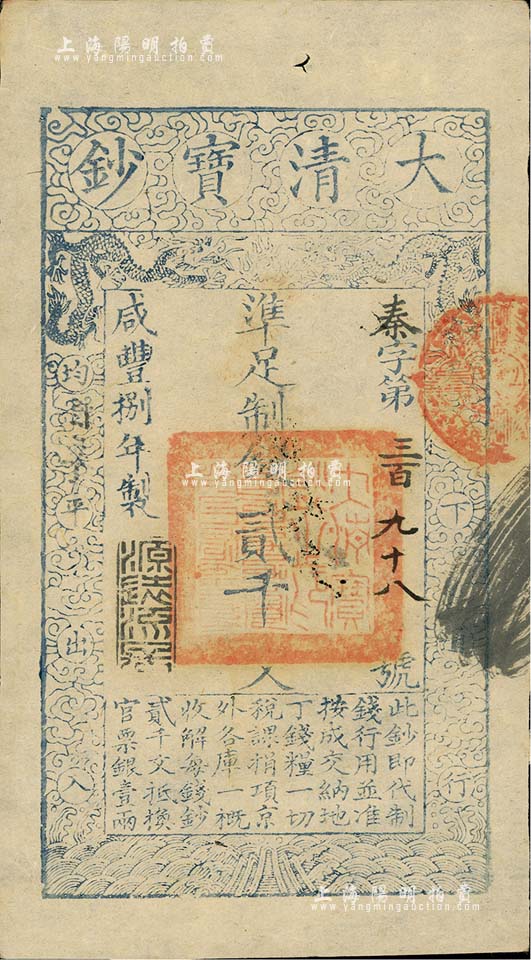 上海陽明拍賣
www.yangmingauction.com
大清寶鈔
秦字第三百九十八號
準足制錢貳千文
咸豐捌年製
源遠流長
天下通行
均平出入
此鈔即代制
錢行用並准
按成交納地
丁錢糧一切
稅課捐項京
外各庫一概
收解每錢鈔
貳千文抵換
官票銀壹兩
上海陽明拍賣
www.yangmingauction.com
上海陽明拍賣
www.yangmingauction.com